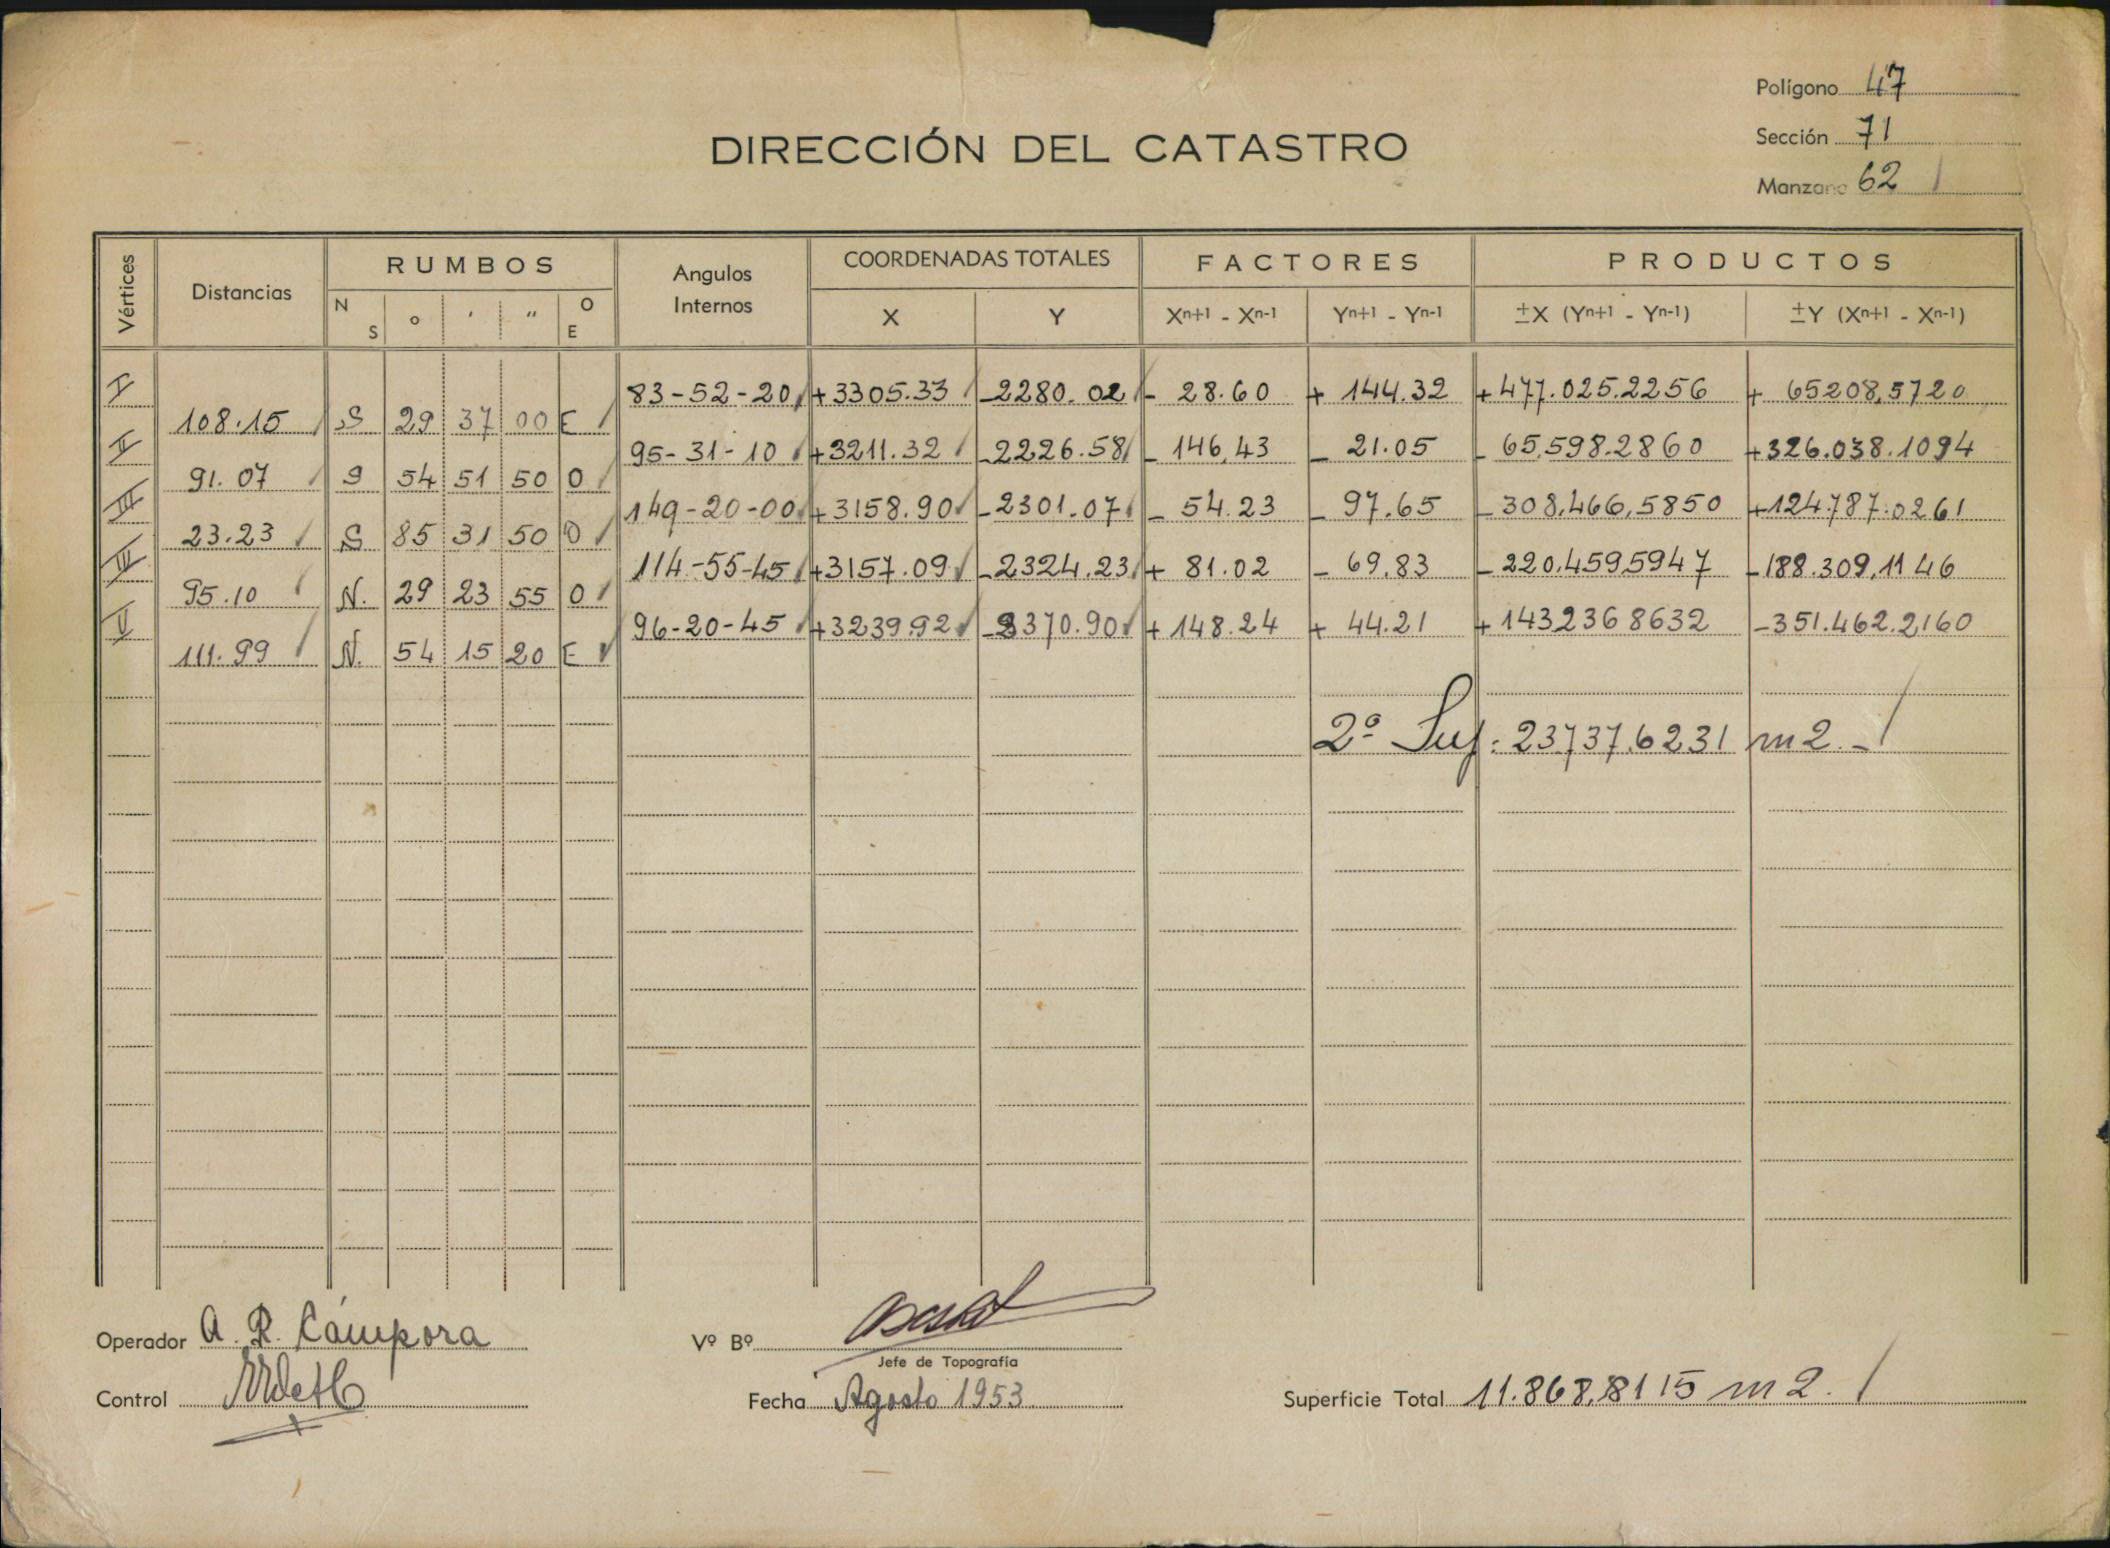 Polígono 47
Sección 71
Manzana 62
DIRECCIÓN DEL CATASTRO
Vértices Distancias RUMBOS Angulos Internos COORDENADAS TOTALES FACTORES PRODUCTOS
N S o ' " O E X Y Xn+1 - Xn-1 Yn+1 - Yn-1 ±X (Yn+1 - Yn-1) ±Y (Xn+1 - Xn-1)
I 83-52-20 +3305.33 -2280.02 - 28.60 + 144.32 +477.025.2256 + 65208,5720
108.15 S 29 37 00 E
II 95-31-10 +3211.32 -2226.58 - 146,43 - 21.05 - 65,598.2860 +326.038.1094
91.07 S 54 51 50 O
III 149-20-00 +3158.90 -2301.07 - 54.23 - 97.65 - 308,466,5850 +124.787.0261
23.23 S 85 31 50 O
IIII 114-55-45 +3157.09 -2324.23 + 81.02 - 69.83 - 220.459.5947 -188.309,1146
95.10 N. 29 23 55 O
V 96-20-45 +3239.92 -2370.90 + 148.24 + 44.21 + 143236 8632 -351.462.2160
111.99 N. 54 15 20 E
2ª Sup: 23737.6231 m2.-
Operador A. R. Cámpora
Vº Bº
Jefe de Topografía
Control
Fecha Agosto 1953.
Superficie Total 11.868,8115 m2.